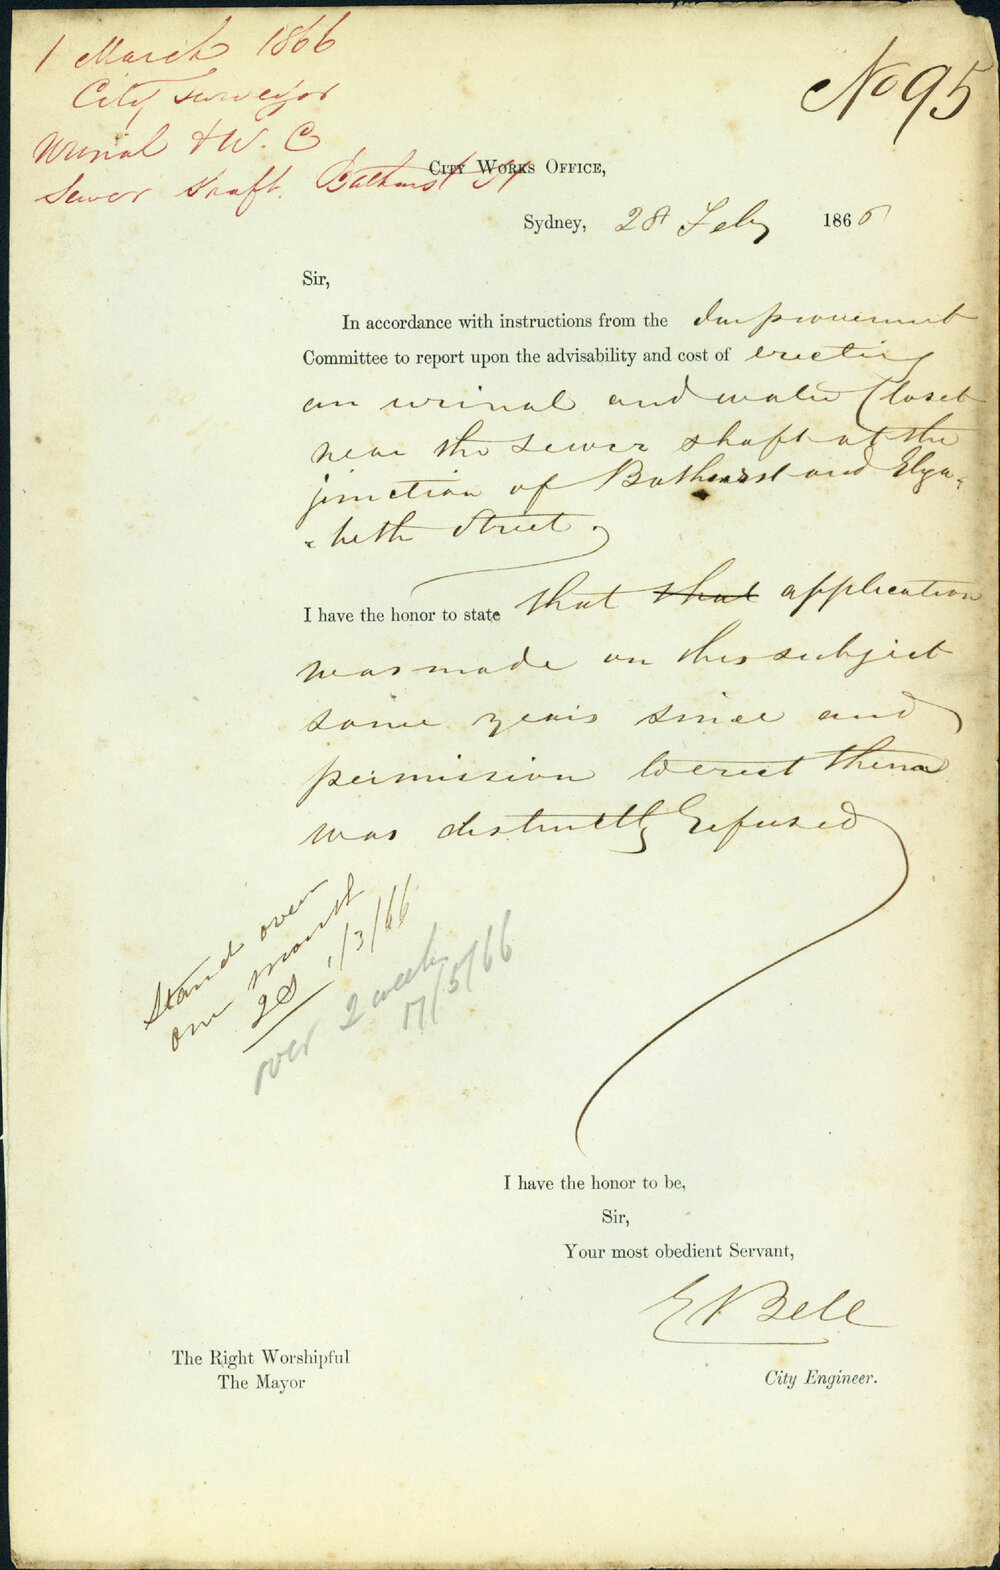 1 March 1866
City Surveyor
Urinal & W. C
Sewer Shaft. Bathurst St
No 95
City Works Office,
Sydney, 28 Feby 1866
Sir,
In accordance with instructions from the Improvement
Committee to report upon the advisability and cost of erecting
an urinal and water Closet
near the sewer shaft at the
junction of Bathurst and Elyza-
-beth Street.
I have the honor to state that that application
was made on this subject
some years since and
permission to erect them
was distinctly refused
Stand over
one month
1/3/66
over 2 weeks
17/5/66
I have the honor to be,
Sir,
Your most obedient Servant,
E Bell
The Right Worshipful
The Mayor
City Engineer.